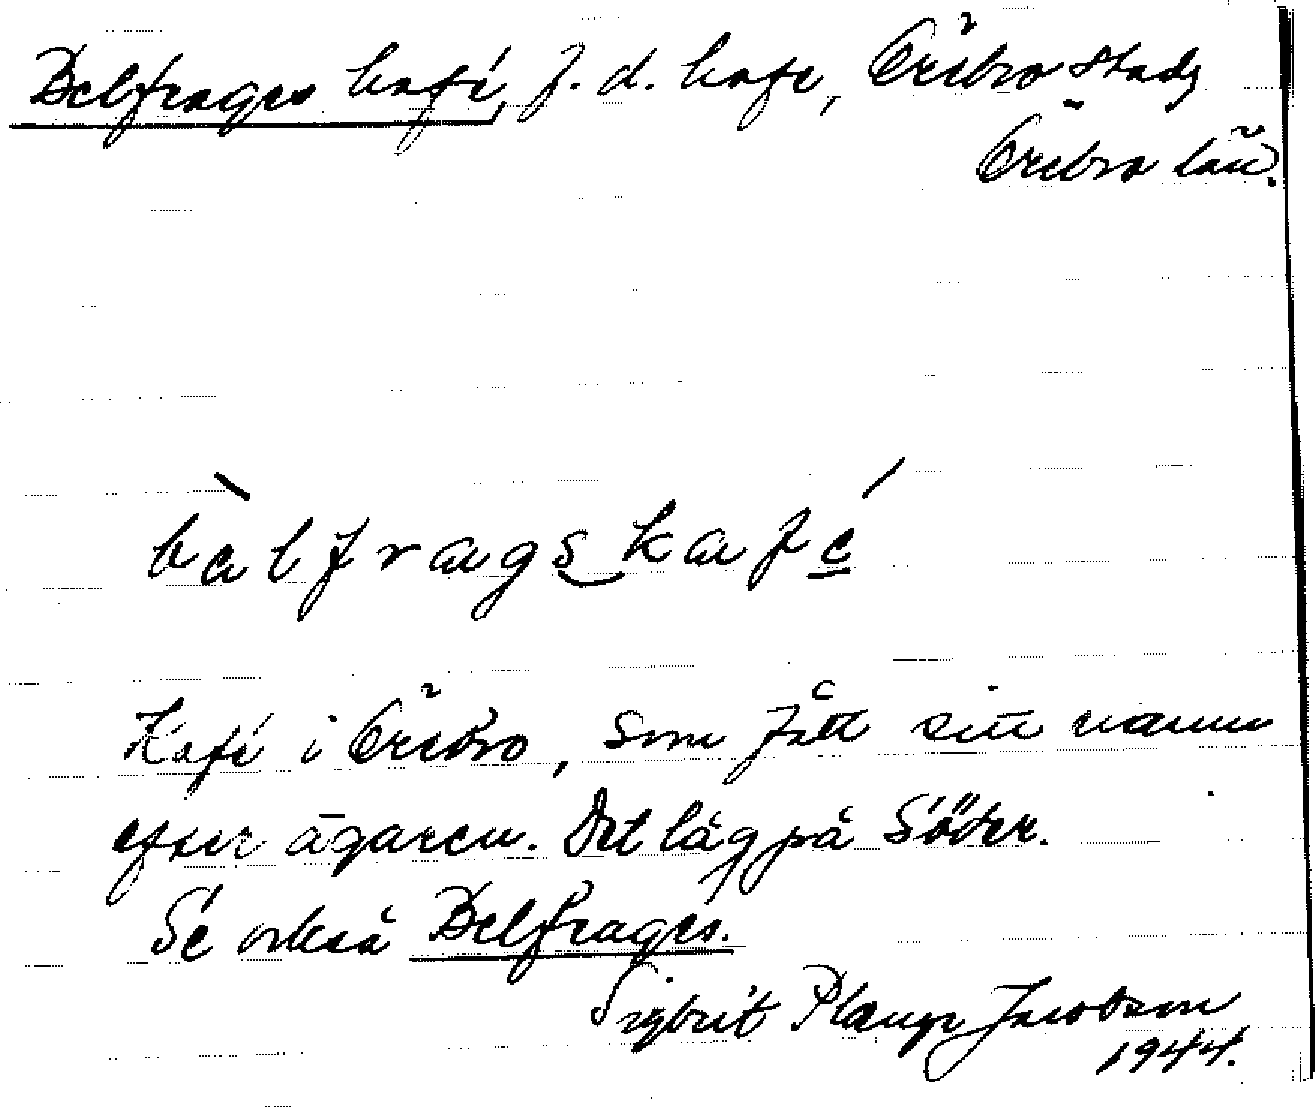 Belfrages kafé, f. d. kafe, Örebro stad,
Örebro län.
bälfragskafé
Kafé i Örebro, som fått sitt namn
efter ägaren. Det låg på Söder.
Se också Belfrages.
Sigbrit Plænge Jacobson
1944.